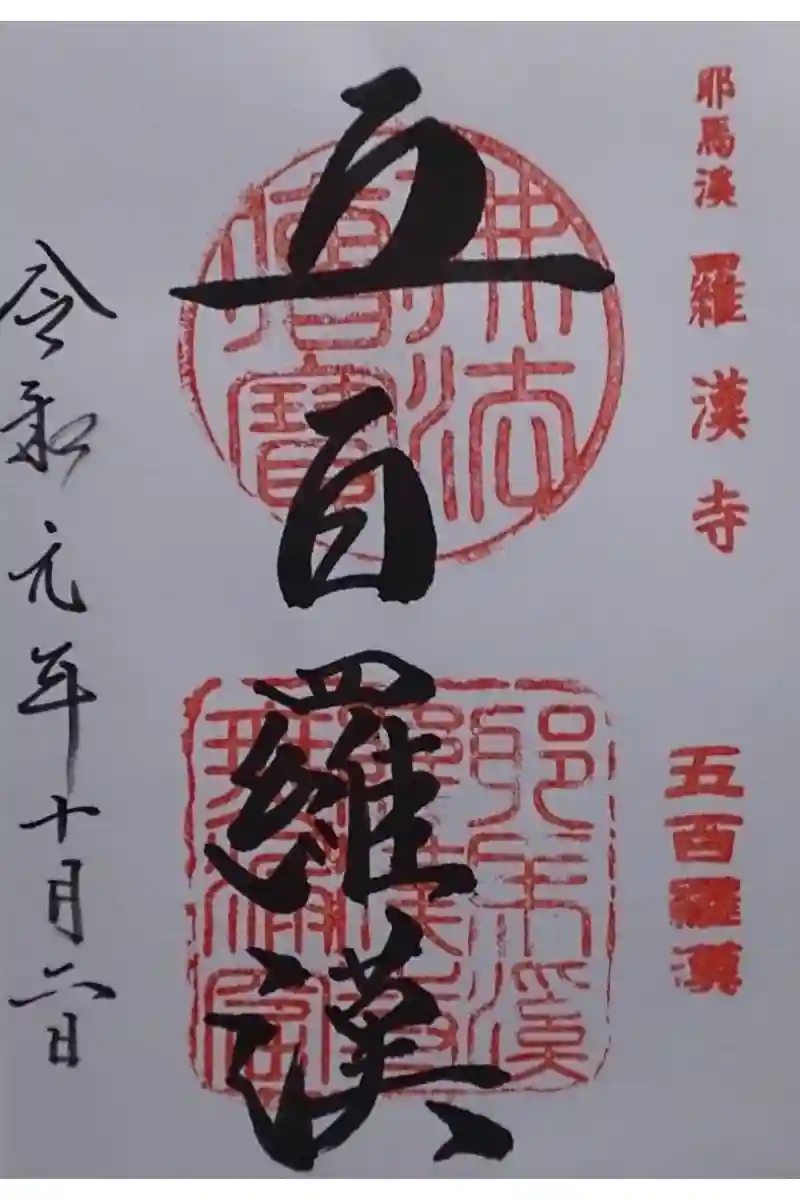 耶馬溪 羅漢寺
五百羅漢
佛法僧寶
五百羅漢
令和元年十月六日